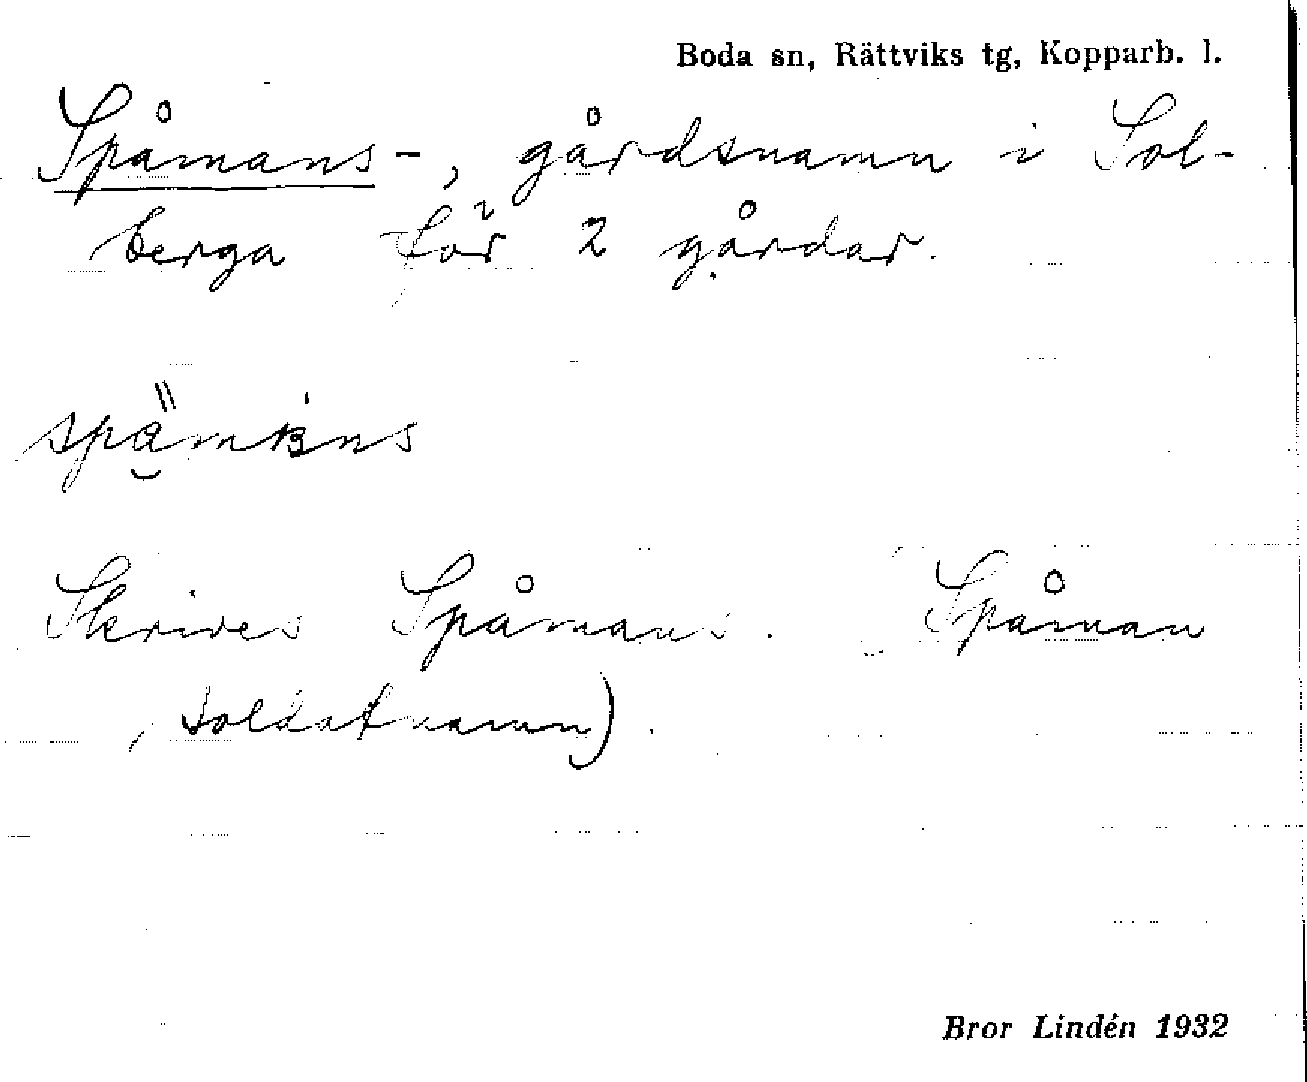 Boda sn, Rättviks tg, Kopparb. l.
Spåmans-, gårdsnamn i Sol-
berga för 2 gårdar.
Skrives Spåmans. Spåman
(soldatnamn).
Bror Lindén 1932